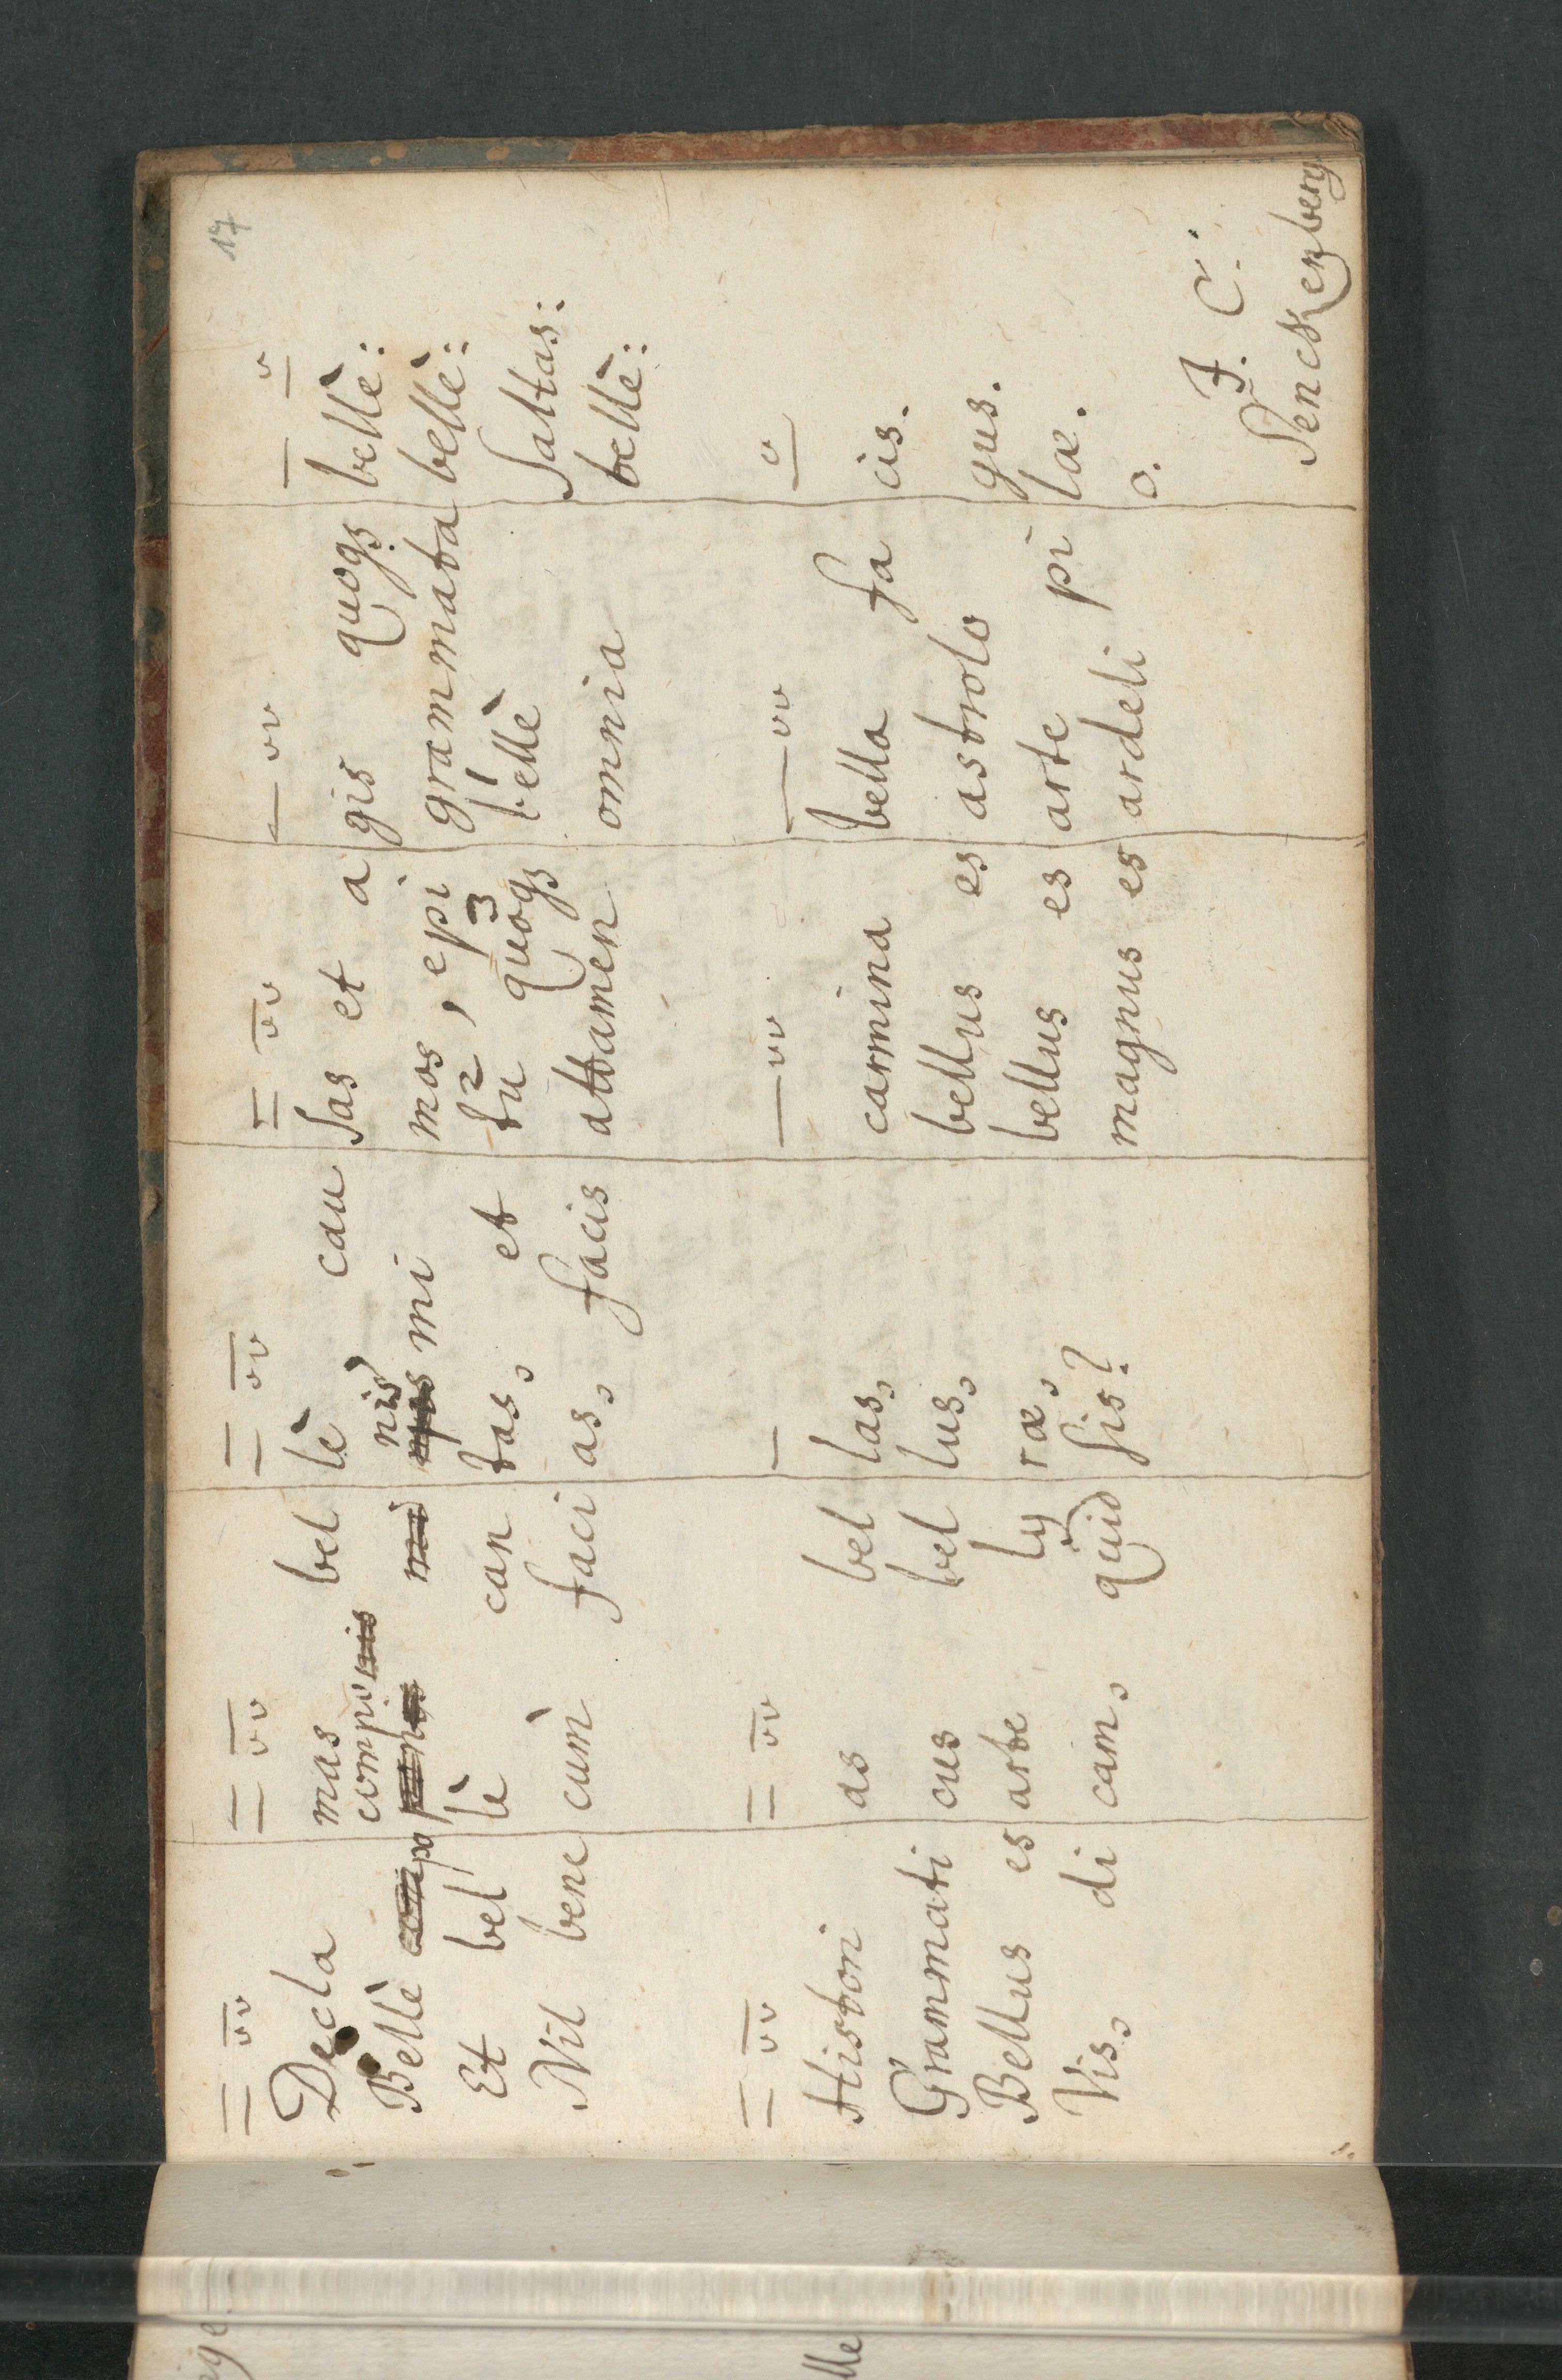 17
— ⏑⏑ — ⏑⏑ — ⏑⏑ — ⏑⏑ — ⏑⏑ — ⏑
Decla mas bel lè cau sas et a gis quoqs bellè:
compo nis
Bellè mi mos mi mos, epi grammata bellè:
Et bel lè can tas, et tu 2 quoqs 3 bellè 1 saltas:
Nil bene cùm faci as, facis attamen omnia bellè:
— ⏑⏑ — ⏑⏑ — — ⏑⏑ — ⏑⏑ — ⏑
Histori as bel las, carmina bella fa cis.
Grammati cus bel lus, bellus es astrolo gus.
Bellus es arte ly ræ, bellus es arte pi lae.
Vis, di cam, quid sis? magnus es ardeli o.
J. C.
Senckenberg